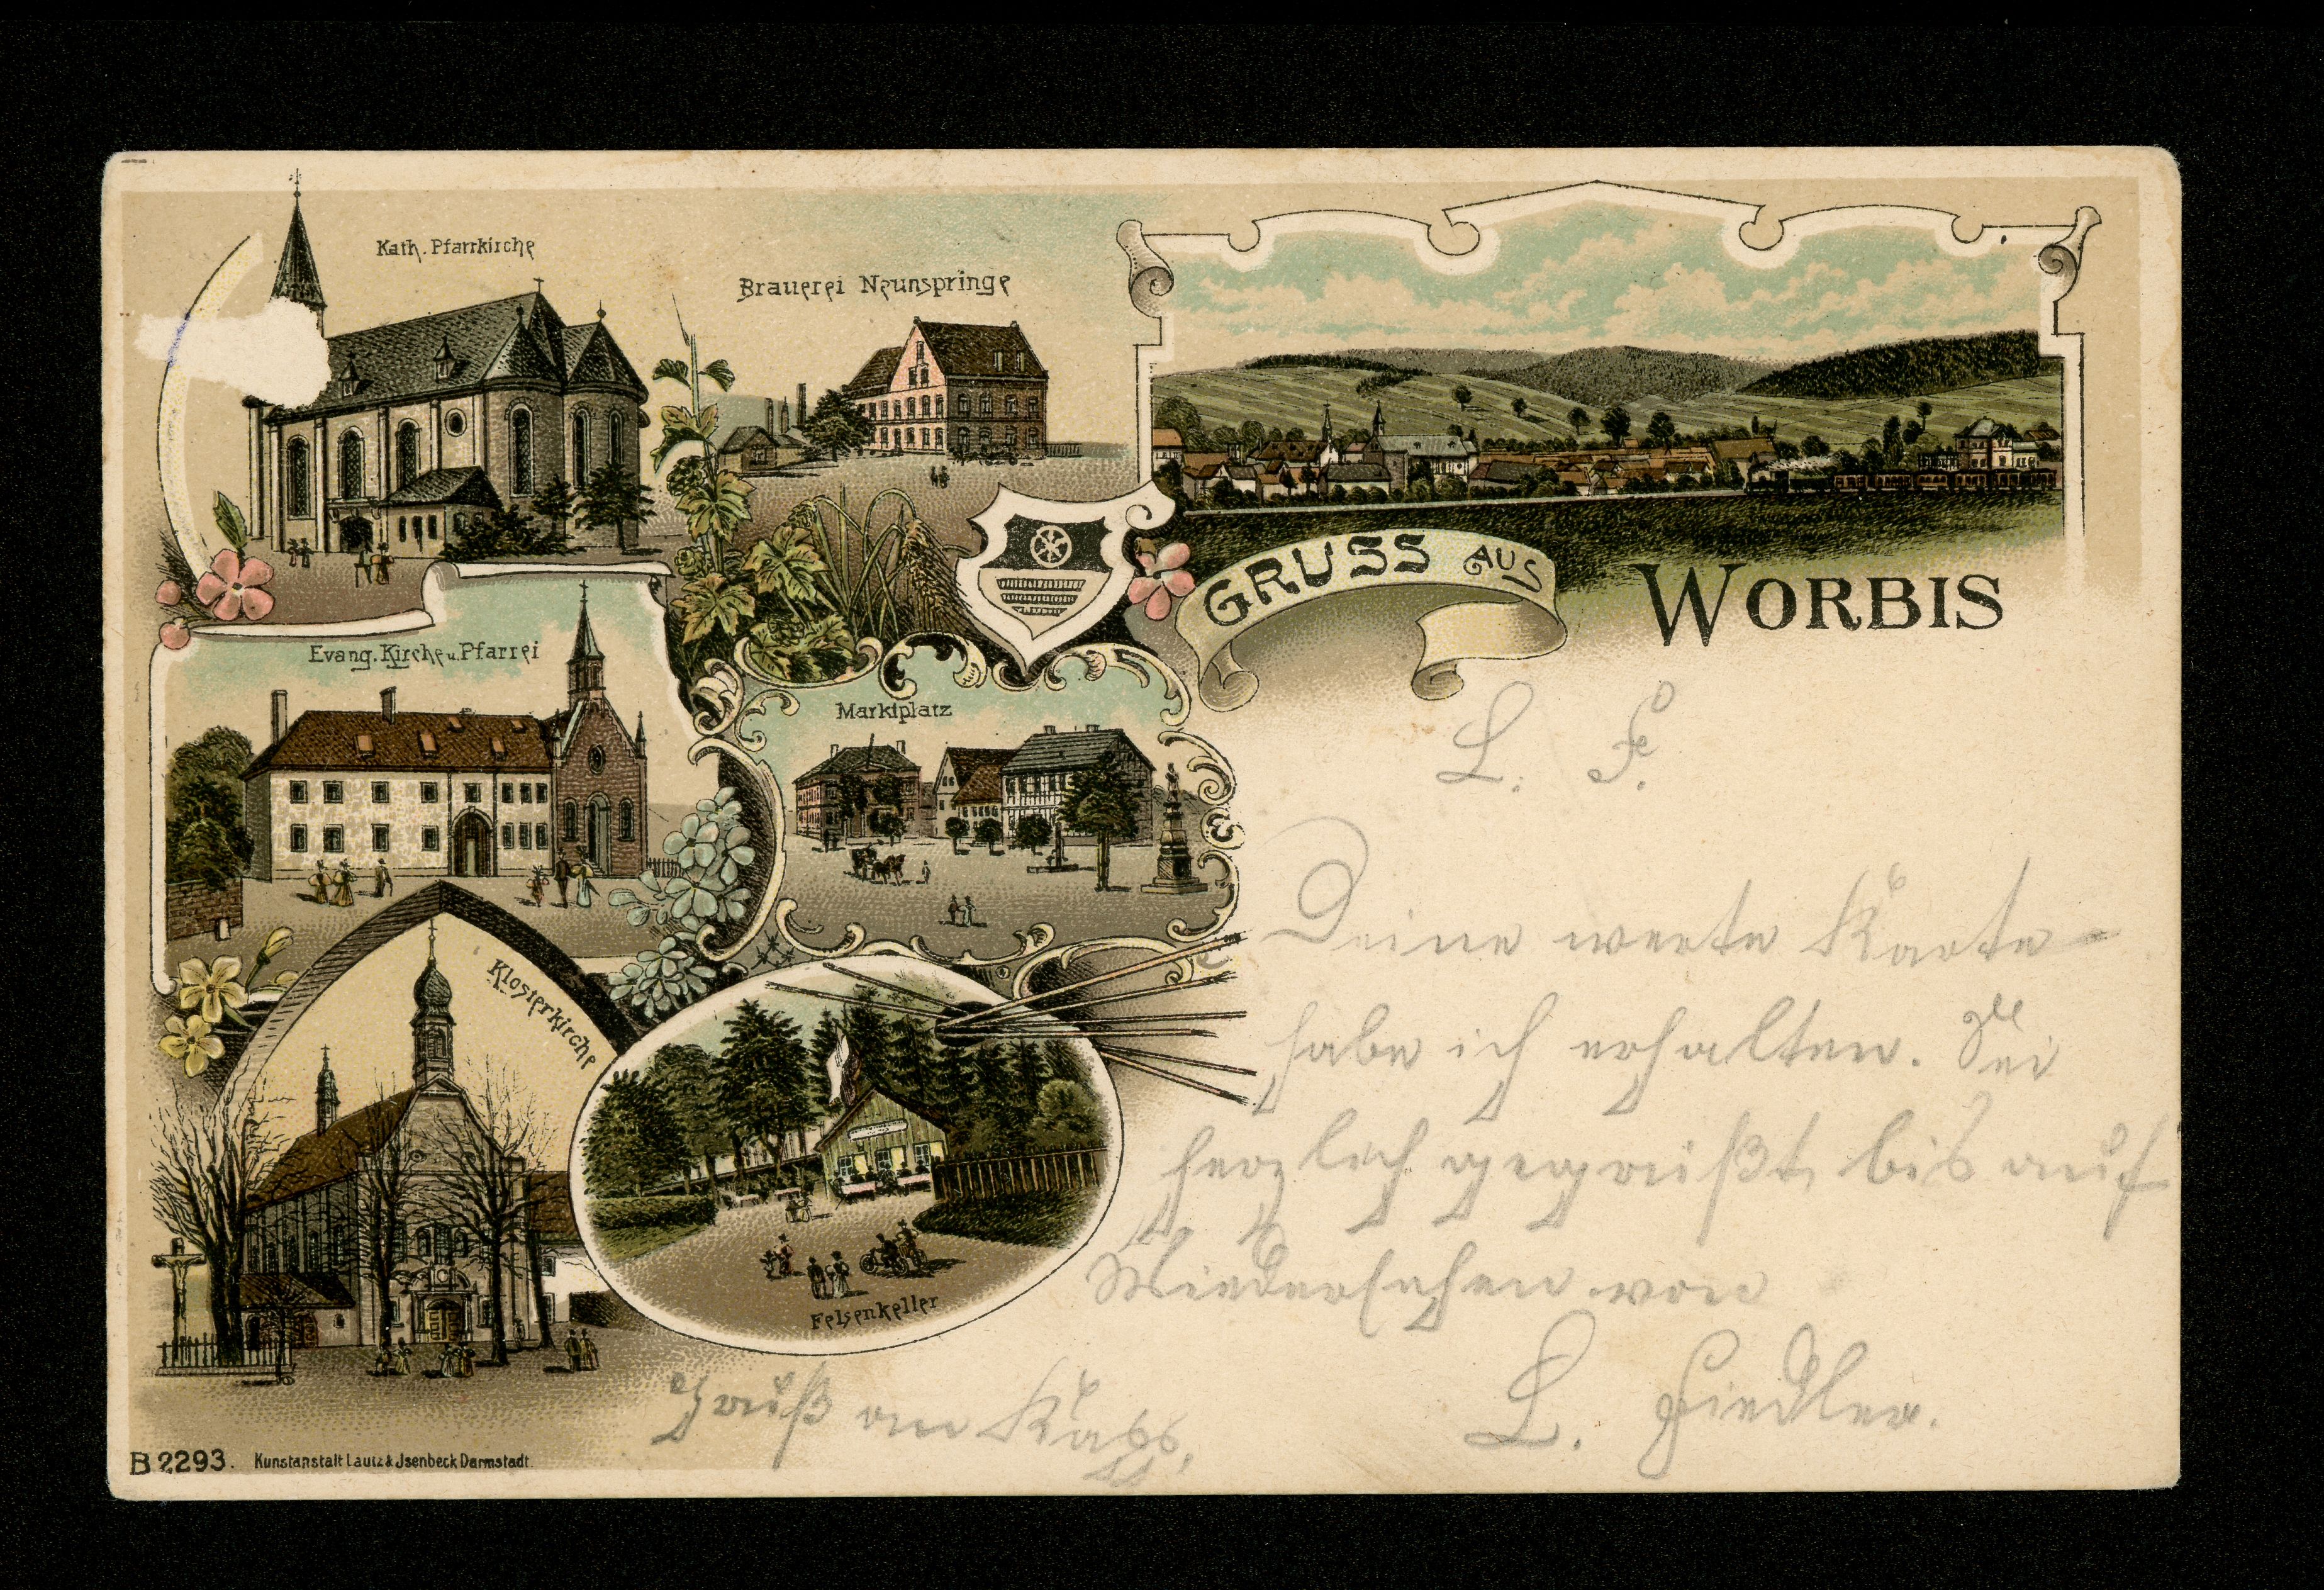 Kath. Pfarrkirche
Brauerei Neunspringe
GRUSS AUS
WORBIS
Evang. Kirche u. Pfarrei
Marktplatz
Klosterkirche
Felsenkeller
L. F.
Deine werte Karte
habe ich erhalten. Sei
herzlich gegrüßt, bis auf
Wiedersehen von
L. Fiedler.
Gruß an
B 2293. Kunstanstalt Lautz & Jsenbeck Darmstadt.